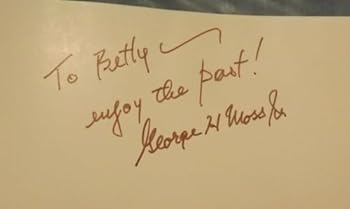 To Betty
enjoy the past!
George H Moss Jr